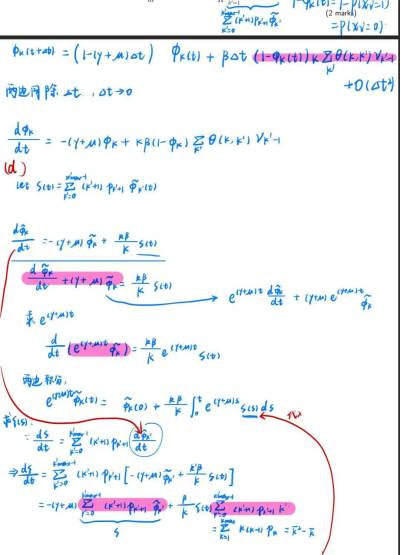 (2 marks)
Φ_k(t+Δt) = (1-(γ+μ)Δt) Φ_k(t) + βΔt (1-Φ_k(t)) k Σ_{k'} θ(k,k') ν_{k'-1}
+O(Δt²)
两边同除 Δt , Δt→0
dΦ_k/dt = -(γ+μ)Φ_k + kβ(1-Φ_k) Σ_{k'} θ(k,k') ν_{k'-1}
(d)
let S(t) = Σ_{k'=0}^{k'max-1} (k'+1) p_{k'+1} Φ̃_{k'}(t)
dΦ̃_k/dt = -(γ+μ) Φ̃_k + kβ/k̄ S(t)
dΦ̃_k/dt + (γ+μ) Φ̃_k = kβ/k̄ S(t)
e^{(γ+μ)t} dΦ̃_k/dt + (γ+μ) e^{(γ+μ)t} Φ̃_k
乘 e^{(γ+μ)t}
d/dt (e^{(γ+μ)t} Φ̃_k) = kβ/k̄ e^{(γ+μ)t} S(t)
两边积分,
e^{(γ+μ)t} Φ̃_k(t) = Φ̃_k(0) + kβ/k̄ ∫_0^t e^{(γ+μ)s} S(s) ds
求S(s):
∵ dS/dt = Σ_{k'=0}^{k'max-1} (k'+1) p_{k'+1} dΦ̃_{k'}/dt
⇒ dS/dt = Σ_{k'=0}^{k'max-1} (k'+1) p_{k'+1} [-(γ+μ) Φ̃_{k'} + k'β/k̄ S(t)]
= -(γ+μ) Σ_{k'=0}^{k'max-1} (k'+1) p_{k'+1} Φ̃_{k'} + β/k̄ S(t) Σ_{k'=0}^{k'max-1} (k'+1) p_{k'+1} k'
S
= Σ_{k=1}^{kmax} k(k-1) p_k = k̄² - k̄